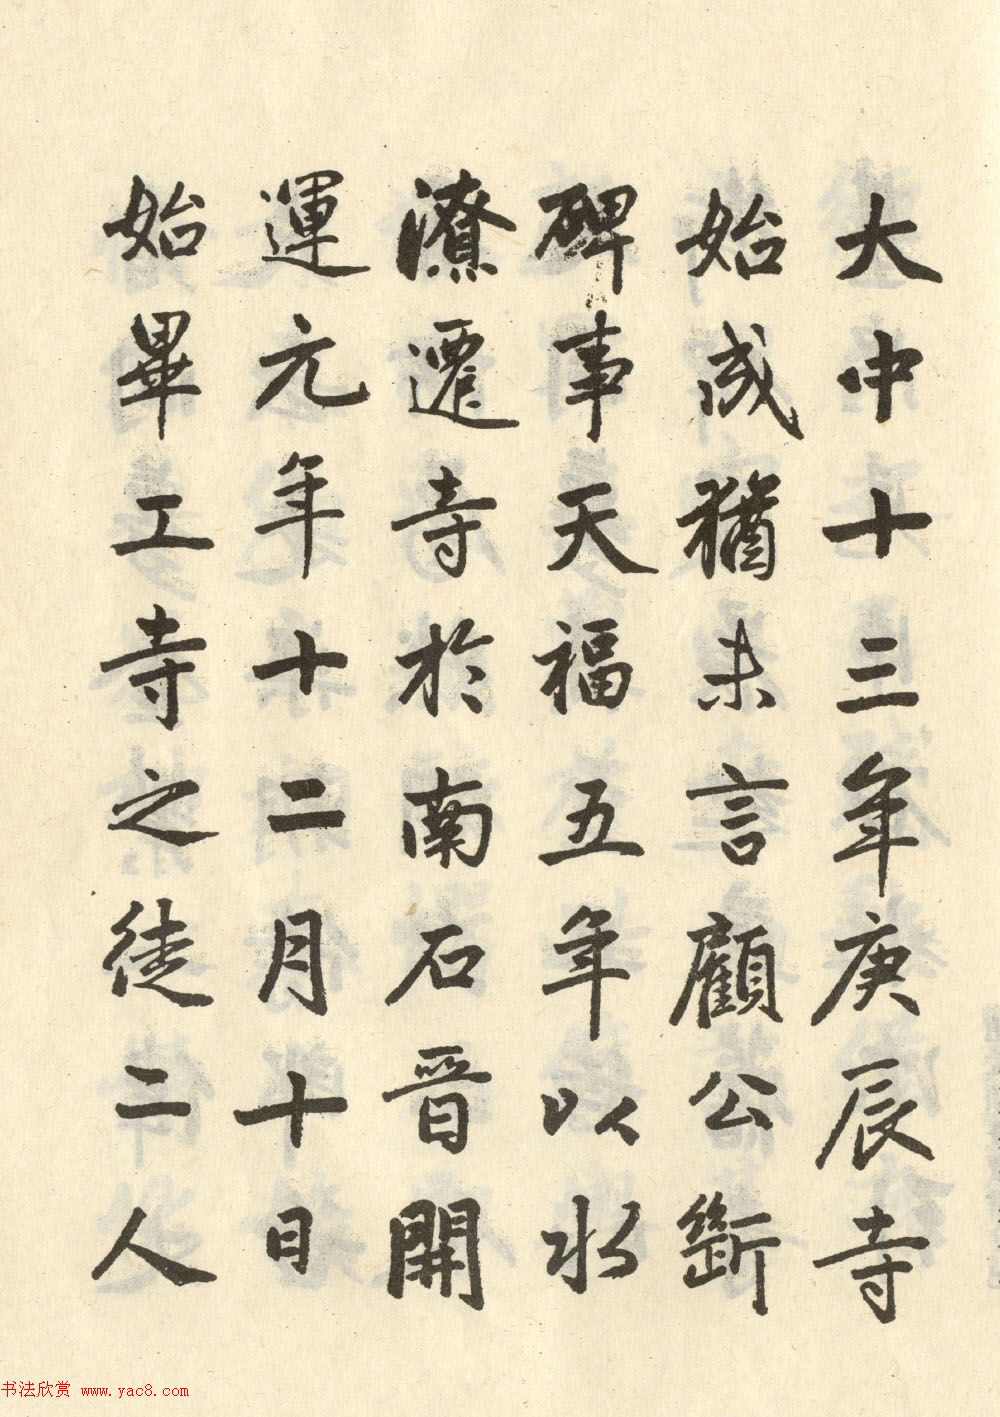 大中十三年庚辰寺
始成猶未言顧公斷
碑事天福五年以水
潦遷寺於南石晉開
運元年十二月十日
始畢工寺之徒二人
书法欣赏 www.yac8.com